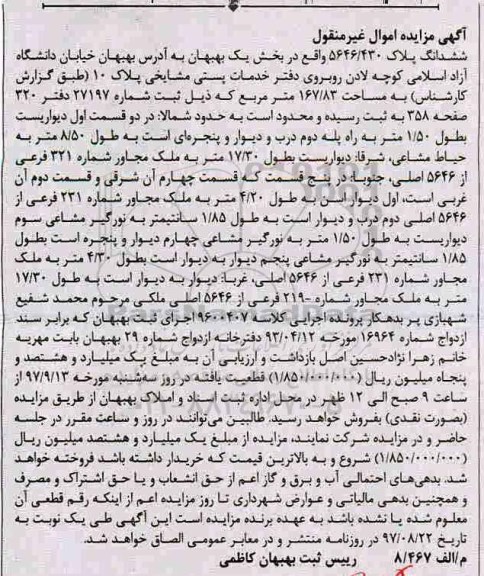 آگهی مزایده اموال غیرمنقول
ششدانگ پلاک ۵۶۴۶/۴۳۰ واقع در بخش یک بهبهان به آدرس بهبهان خیابان دانشگاه
آزاد اسلامی کوچه لادن روبروی دفتر خدمات پستی مشایخی پلاک ۱۰ (طبق گزارش
کارشناس) به مساحت ۱۶۷/۸۳ متر مربع که ذیل ثبت شماره ۲۷۱۹۷ دفتر ۳۲۰
صفحه ۳۵۸ به ثبت رسیده و محدود است به حدود شمالا: در دو قسمت اول دیواریست
بطول ۱/۵۰ متر به راه پله دوم درب و دیوار و پنجره‌ای است به طول ۸/۵۰ متر به
حیاط مشاعی، شرقا: دیواریست بطول ۱۷/۳۰ متر به ملک مجاور شماره ۳۲۱ فرعی
از ۵۶۴۶ اصلی، جنوبا: در پنج قسمت که قسمت چهارم آن شرقی و قسمت دوم آن
غربی است، اول دیوار است به طول ۴/۲۰ متر به ملک مجاور شماره ۲۳۱ فرعی از
۵۶۴۶ اصلی دوم درب و دیوار است به طول ۱/۸۵ سانتیمتر به نورگیر مشاعی سوم
دیواریست به طول ۱/۵۰ متر به نورگیر مشاعی چهارم دیوار و پنجره است بطول
۱/۸۵ سانتیمتر به نورگیر مشاعی پنجم دیوار به دیوار است بطول ۴/۳۰ متر به ملک
مجاور شماره ۲۳۱ فرعی از ۵۶۴۶ اصلی، غربا: دیوار به دیوار است به طول ۱۷/۳۰
متر به ملک مجاور شماره -۲۱۹ فرعی از ۵۶۴۶ اصلی ملکی مرحوم محمد شفیع
شهبازی پر بدهکار پرونده اجرایی کلاسه ۹۶۰۰۴۰۷ اجرای ثبت بهبهان که برابر سند
ازدواج شماره ۱۶۹۶۴ مورخه ۹۲/۰۴/۱۲ دفترخانه ازدواج شماره ۲۹ بهبهان بابت مهریه
خانم زهرا نژادحسین اصل بازداشت و ارزیابی آن به مبلغ یک میلیارد و هشتصد و
پنجاه میلیون ریال (۱/۸۵۰/۰۰۰/۰۰۰) قطعیت یافته در روز سه‌شنبه مورخه ۹۷/۹/۱۳
ساعت ۹ صبح الی ۱۲ ظهر در محل اداره ثبت اسناد و املاک بهبهان از طریق مزایده
(بصورت نقدی) بفروش خواهد رسید. طالبین می‌توانند در روز و ساعت مقرر در جلسه
حاضر و در مزایده شرکت نمایند، مزایده از مبلغ یک میلیارد و هشتصد میلیون ریال
(۱/۸۵۰/۰۰۰/۰۰۰) شروع و به بالاترین قیمت که خریدار داشته باشد فروخته خواهد
شد. بدهی‌های احتمالی آب و برق و گاز اعم از حق انشعاب و یا حق اشتراک و مصرف
و همچنین بدهی مالیاتی و عوارض شهرداری تا روز مزایده اعم از اینکه رقم قطعی آن
معلوم شده یا نشده باشد به عهده برنده مزایده است این آگهی طی یک نوبت به
تاریخ ۹۷/۰۸/۲۲ در روزنامه منتشر و در معابر عمومی الصاق خواهد شد.
م/الف ۸/۴۶۷ رییس ثبت بهبهان کاظمی